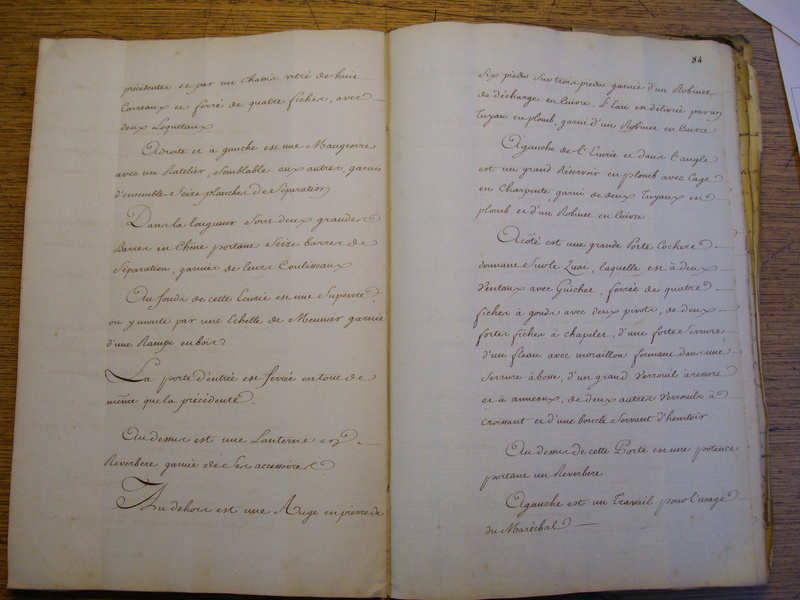 précédentes et par un chassis vitré de huit
Carreaux et ferré de quatre fiches, avec
deux Loqueteaux
Adroite et à gauche est une Mangeoire
avec un Ratelier, Semblable aux autres, garnie
d'ensemble Seize planches de Séparation
Dans la longueur Sont deux grandes
Barres en Chêne portant Seize barres de
Séparation, garnies de leurs Coulisseaux
Au fonds de cette Ecurie est une Supente,
on y monte par une Echelle de Meunier garnie
d'une Rampe en bois
La porte d'entrée est ferrée en tout de
même que la précédente.
Au dessus est une Lanterne en
Reverbere garnie de Ses accessoires
Au dehors est une Auge en pierre de
84
Six pieds Sur trois pieds garnie d'un Robinet
de décharge en Cuivre. L'Eau en délivrée par un
Tuyau en plomb, garni d'un Robinet en Cuivre
Agauche de l'Ecurie et dans l'angle
est un grand Réservoir en plomb avec Cage
en Charpente, garni de deux Tuyaux en
plomb et d'un Robinet en Cuivre.
Acôté est une grande Porte Cochere
donnant Sur le Quai, laquelle est à deux
Ventaux avec Guichet, ferrée de quatre
fiches à gonds avec deux pivots, de deux
fortes fiches à chapelet, d'une forte Serrure
d'un fleau avec moraillon fermant dans une
Serrure à bosse, d'un grand Verrouil à ressort
et à anneaux, de deux autres Verrouils à
croissant et d'une boucle Servant d'heurtoir
Au dessus de cette Porte est une potence
portant un Reverbere.
Agauche est un Travail pour l'usage
du Maréchal